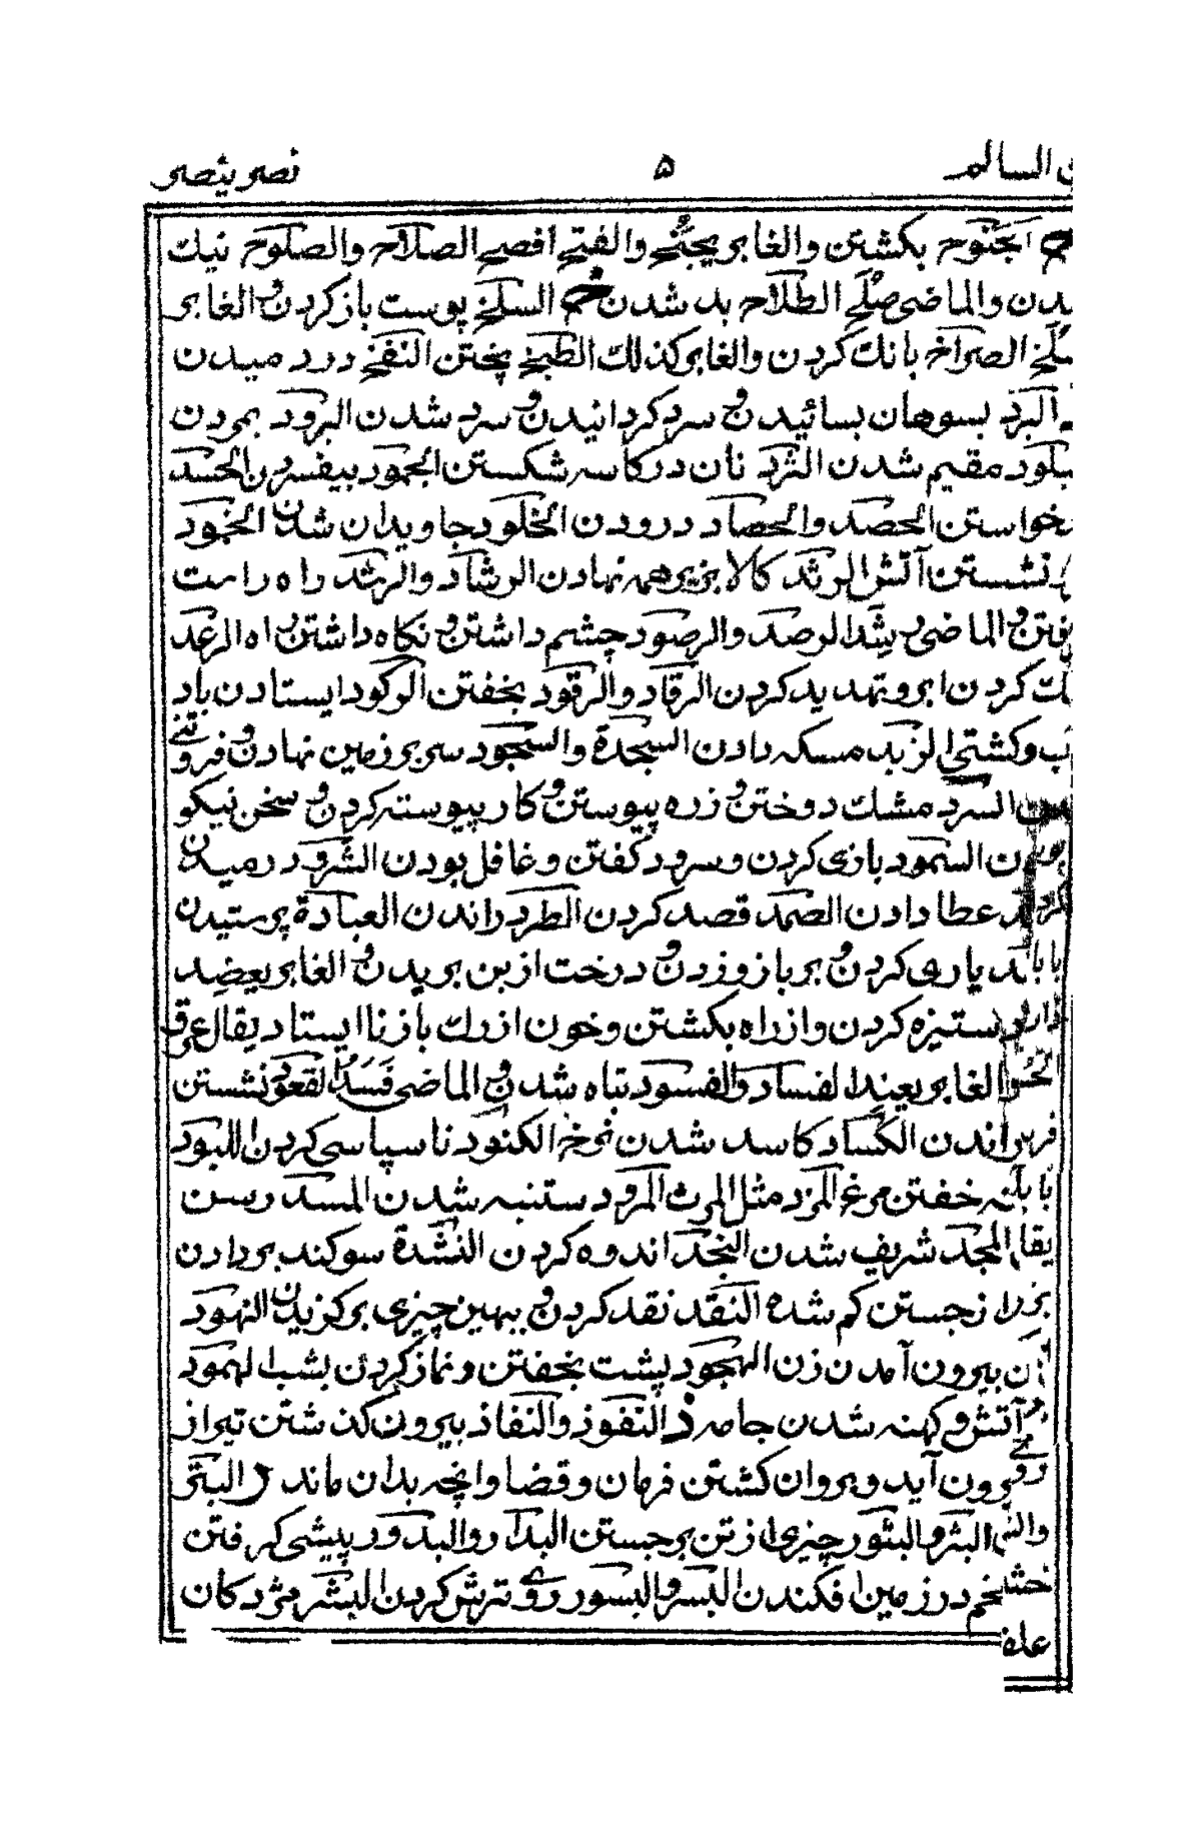 السالم ۵ نصر ینصر
الجنوح بکشتن والغابر یجنح والفتح افصح الصلاح والصلوح نیک
والماضی صلح الطلاح بد شدن خ السلخ پوست باز کردن و الغابر
الصراخ بانک کردن والغابر کذلک الطبخ پختن النفخ دردمیدن
البرد بسوهان بسائیدن و سرد کردانیدن و سرد شدن البرود بمردن
مقیم شدن الثرد نان در کاسه شکستن الجمود بیفسردن الحسد
الحصد والحصاد درودن الخلود جاویدان شدن الخمود
نشستن آتش الرثد کالا بزبر همه نهادن الرشاد والرشد راه راست
والماضی رشد الرصد والرصود چشم داشتن و نکاه داشتن راه الرعد
کردن ابر و تهدید کردن الرقاد والرقود بخفتن الرکود ایستادن باد
وکشتی الزبد مسکه دادن السجدة والسجود سر بر زمین نهادن و فروتنی
السرد مشک دوختن و زره پیوستن و کار پیوسته کردن و سخن نیکو
السمود بازی کردن و سرود کفتن و غافل بودن الشرود رمیدن
عطا دادن الصمد قصد کردن الطرد راندن العبادة پرستیدن
یاری کردن و بر بازو زدن و درخت از بن بریدن و الغابر یعضد
ستیزه کردن و از راه بکشتن و خون از رک باز نا ایستاد یقال عرق
الغابر یعند الفساد والفسود تباه شدن و الماضی فسد القعود نشستن
الکساد کاسد شدن نرخ الکنود ناسپاسی کردن اللبود
خفتن مرغ المرد مثل المرث المرود ستنبه شدن المسد رسن
المجد شریف شدن النجد اندوه کردن النشدة سوکند بر دادن
جستن کم شده النقد نقد کردن و بهین چیزی برکزیدن النهود
بیرون آمدن زن الهجود پشت بخفتن و نماز کردن بشب الهمود
آتش و کهنه شدن جامه ذ النفوذ والنفاذ بیرون کذشتن تیر از
بیرون آید و بروان کشتن فرمان و قضا و انچه بدان ماند ر البتر
البثر والبثور چیزی از تن برجستن البدار والبدور پیشی کرفتن
تخم در زمین افکندن البسر والبسور روی ترش کردن البشر مژدکان